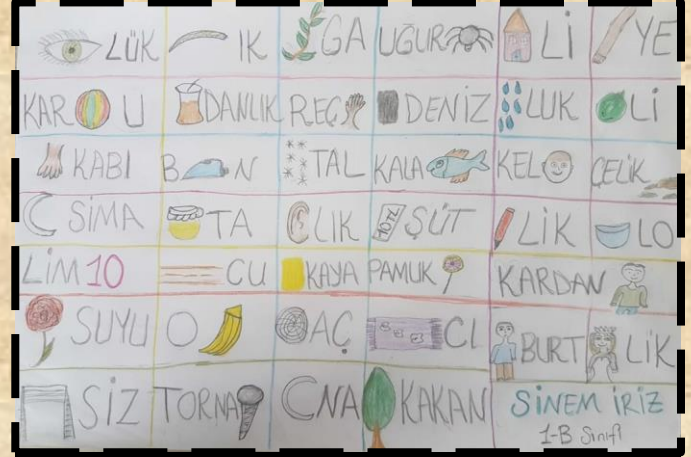 LÜK IK GA UĞUR Lİ YE
KAR U DANLIK REÇ DENİZ LUK Lİ
KABI B N TAL KALA KEL ÇELİK
SİMA TA LIK 10 TL ŞÜT LİK LO
LİM10 CU KAYA PAMUK KARDAN
SUYU O AÇ CI BURT LİK
SİZ TORNA NA KAKAN SİNEM İRİZ
1-B Sınıfı